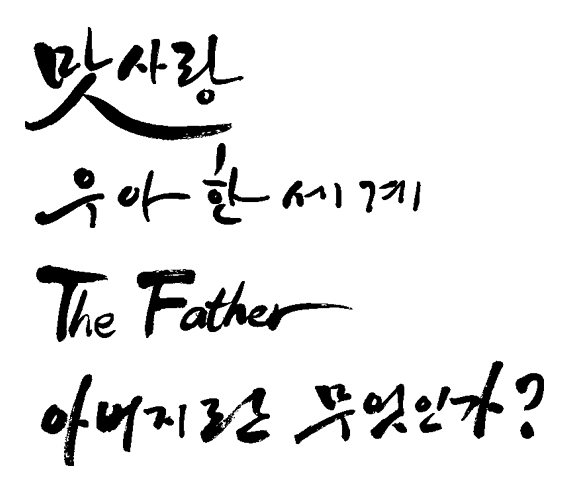 맛사랑
우아한 세계
The Father
아버지란 무엇인가?